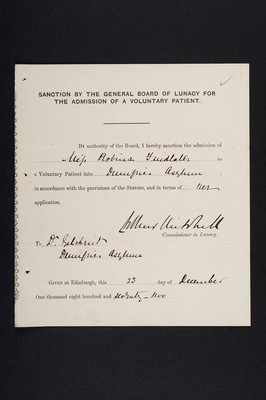 SANCTION BY THE GENERAL BOARD OF LUNACY FOR
THE ADMISSION OF A VOLUNTARY PATIENT.
By authority of the Board, I hereby sanction the admission of
Miss Robina Findlater as
a Voluntary Patient into Dumfries Asylum
in accordance with the provisions of the Statute, and in terms of her
application.
Arthur Mitchell
Commissioner in Lunacy.
To Dr. Gilchrist
Dumfries Asylum
Given at Edinburgh, this 23 day of December
One thousand eight hundred and seventy-two